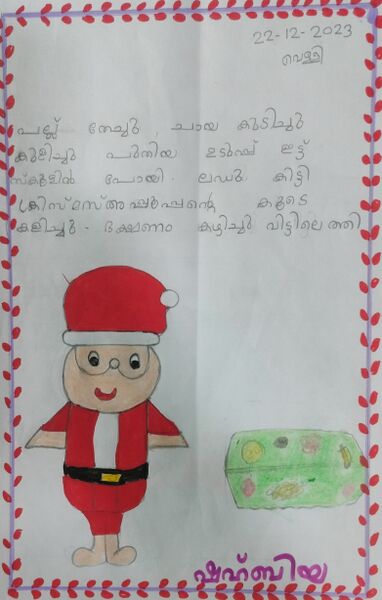 22-12-2023
വെള്ളി
പല്ല് തേച്ചു, ചായ കുടിച്ചു
കുളിച്ചു പുതിയ ഉടുപ്പ് ഇട്ട്
സ്കൂളിൽ പോയി. ലഡു കിട്ടി
ക്രിസ്മസ്അപ്പൂപ്പന്റെ കൂടെ
കളിച്ചു. ഭക്ഷണം കഴിച്ചു വിട്ടിലെത്തി
ഷഹ്ബിയ